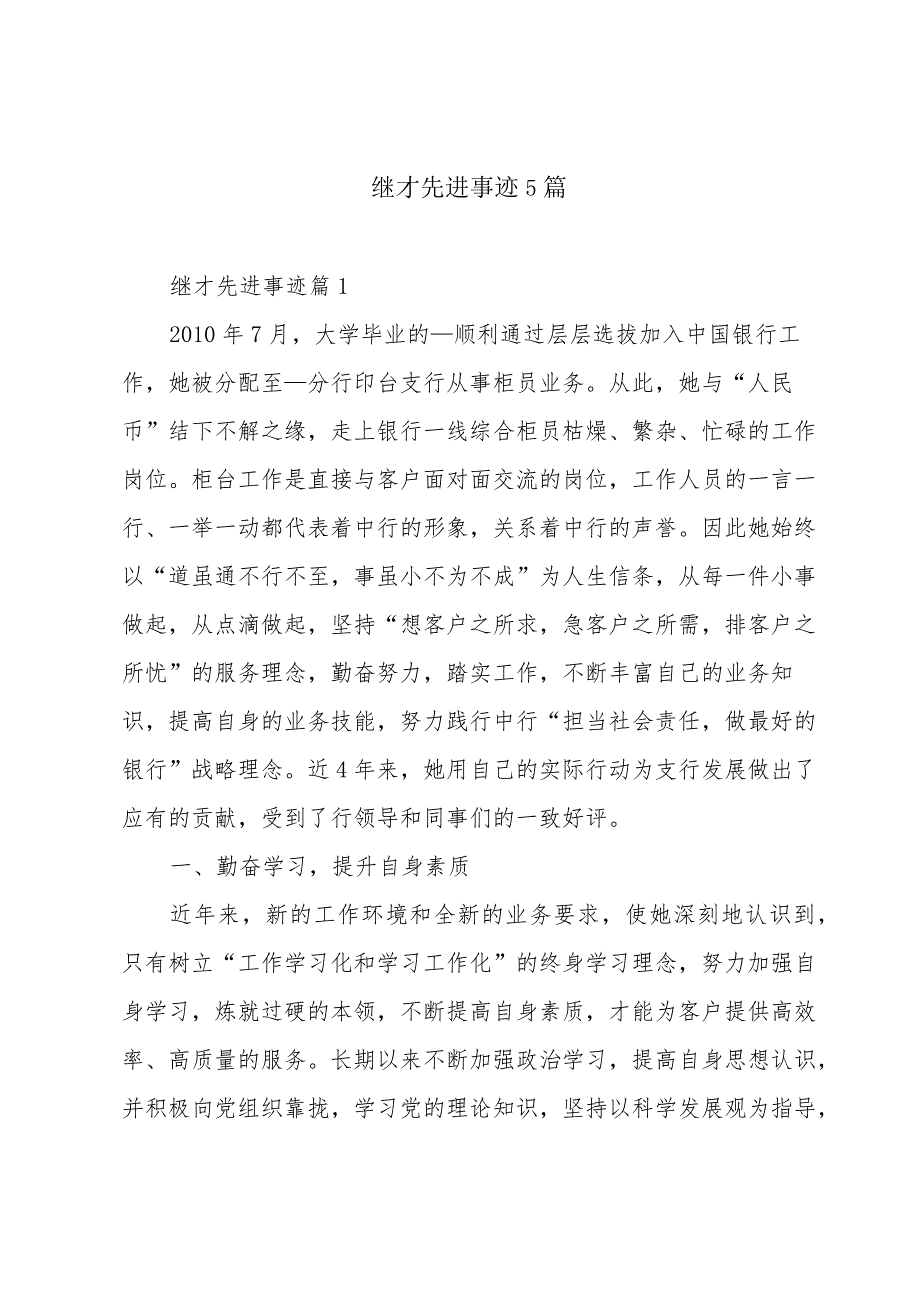 继才先进事迹5篇
继才先进事迹篇1
2010年7月，大学毕业的—顺利通过层层选拔加入中国银行工
作，她被分配至—分行印台支行从事柜员业务。从此，她与“人民
币”结下不解之缘，走上银行一线综合柜员枯燥、繁杂、忙碌的工作
岗位。柜台工作是直接与客户面对面交流的岗位，工作人员的一言一
行、一举一动都代表着中行的形象，关系着中行的声誉。因此她始终
以“道虽通不行不至，事虽小不为不成”为人生信条，从每一件小事
做起，从点滴做起，坚持“想客户之所求，急客户之所需，排客户之
所忧”的服务理念，勤奋努力，踏实工作，不断丰富自己的业务知
识，提高自身的业务技能，努力践行中行“担当社会责任，做最好的
银行”战略理念。近4年来，她用自己的实际行动为支行发展做出了
应有的贡献，受到了行领导和同事们的一致好评。
一、勤奋学习，提升自身素质
近年来，新的工作环境和全新的业务要求，使她深刻地认识到，
只有树立“工作学习化和学习工作化”的终身学习理念，努力加强自
身学习，炼就过硬的本领，不断提高自身素质，才能为客户提供高效
率、高质量的服务。长期以来不断加强政治学习，提高自身思想认识，
并积极向党组织靠拢，学习党的理论知识，坚持以科学发展观为指导，